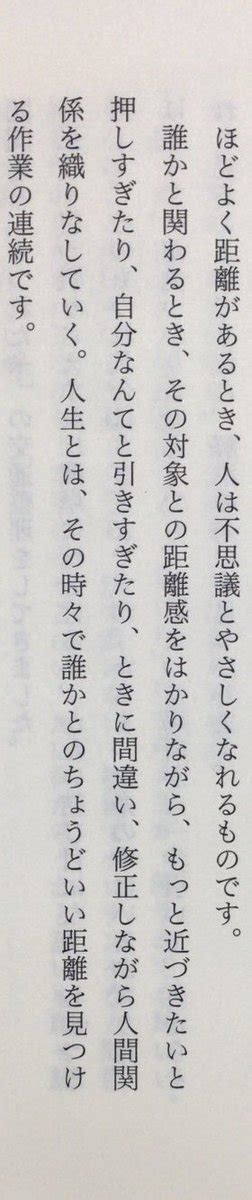 ほどよく距離があるとき、人は不思議とやさしくなれるものです。
誰かと関わるとき、その対象との距離感をはかりながら、もっと近づきたいと
押しすぎたり、自分なんてと引きすぎたり、ときに間違い、修正しながら人間関
係を織りなしていく。人生とは、その時々で誰かとのちょうどいい距離を見つけ
る作業の連続です。